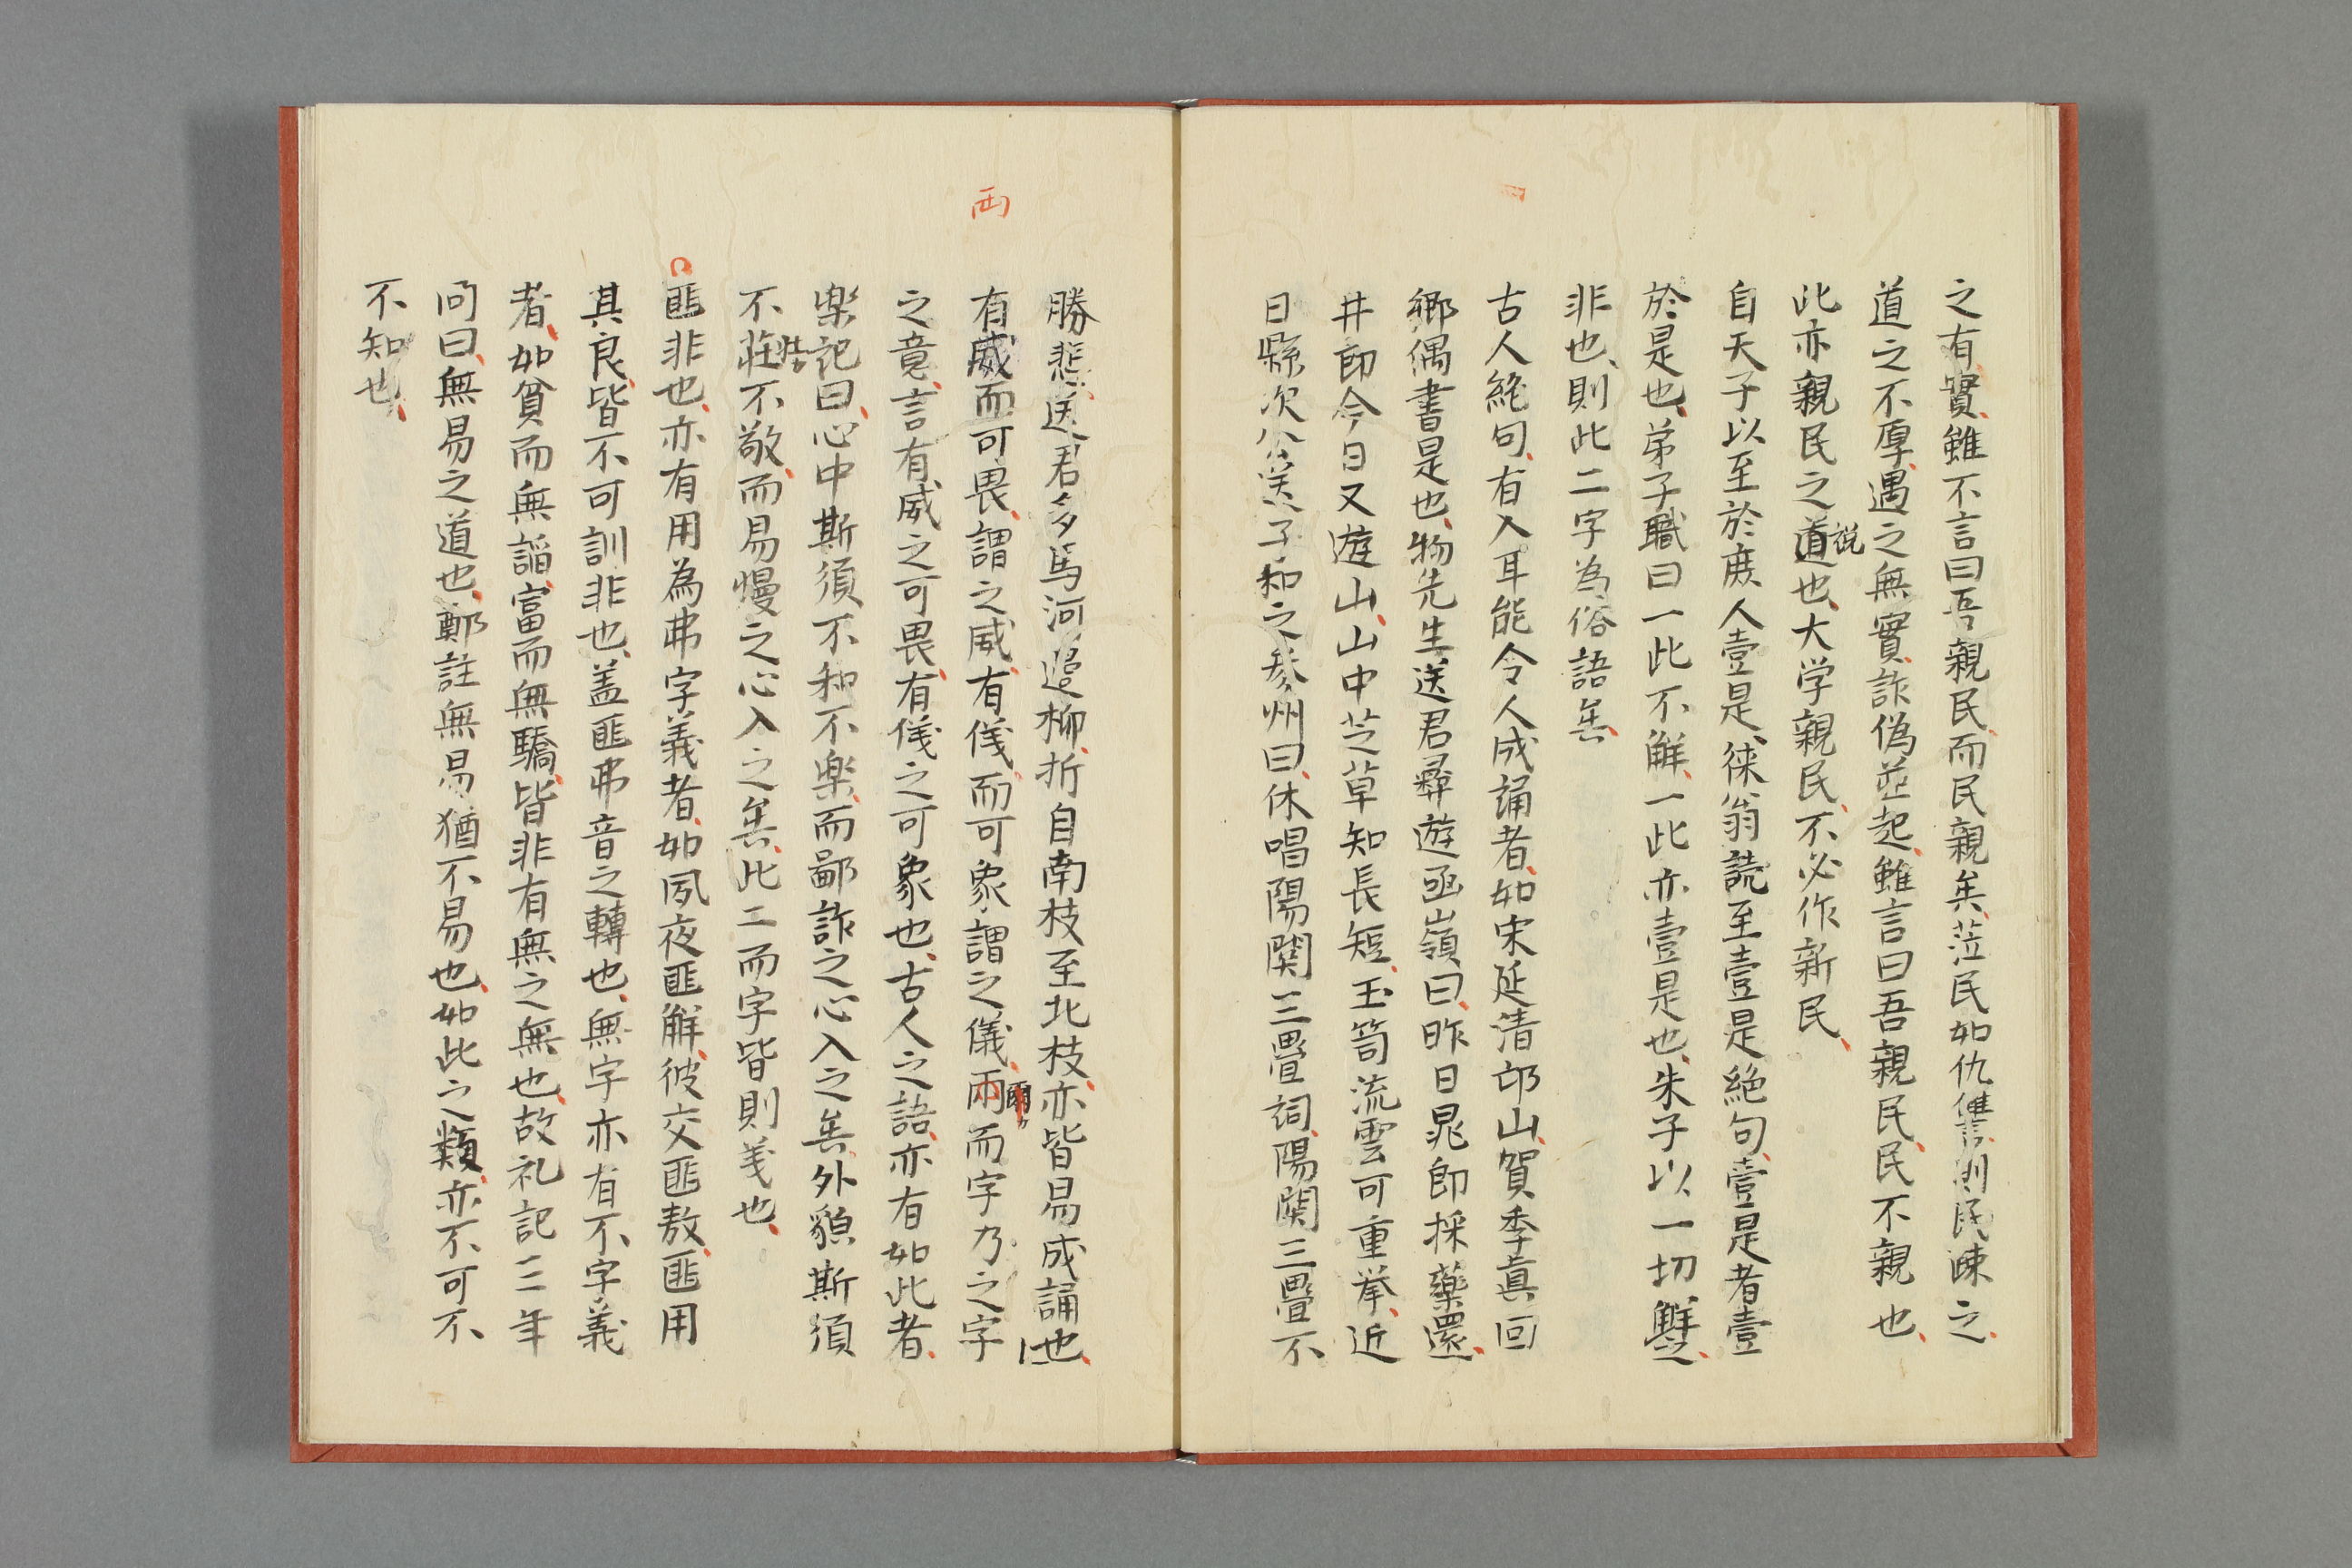 之有實、雖不言曰吾親民、而民親矣、莅民如仇讐、則民疎之、
道之不厚、遇之無實、詐偽並起、雖言曰吾親民、民不親也、
此亦親民之道也、大学親民、不必作新民、
説
自天子以至於庶人壹是、徠翁読至壹是絶句、壹是者壹
於是也、弟子職曰一此不解、一此亦壹是也、朱子以一切觧之、
非也、則此二字為俗語矣、
古人絶句、有入耳能令人成誦者、如宋延清邙山、賀季真回
郷偶書是也、物先生送君彝遊函嶺曰、昨日晁卿採薬還、
井即今日又遊山、山中芝草知長短、玉笥流雲可重挙、近
日縣次公送子和之参州曰、休唱陽関三疊詞、陽関三疊不
勝悲、送君多馬河邊柳、折自南枝至北枝、亦皆易成誦也、
両
有威而可畏、謂之威、有儀、而可象、謂之儀、両而字乃之字
之意、言有威之可畏、有儀之可象也、古人之語、亦有如此者、
楽記曰、心中斯須不和不楽、而鄙詐之心入之矣、外貌斯須
不荘不敬、而易慢之心入之矣、此二而字皆則義也、
匪非也、亦有用為弗字義者、如夙夜匪解、彼交匪敖、匪用
其良、皆不可訓非也、盖匪弗音之轉也、無字亦有不字義
者、如貧而無諂、富而無驕、皆非有無之無也、故礼記三年
问曰、無易之道也、鄭註無易猶不易也、如此之類、亦不可不
不知也、